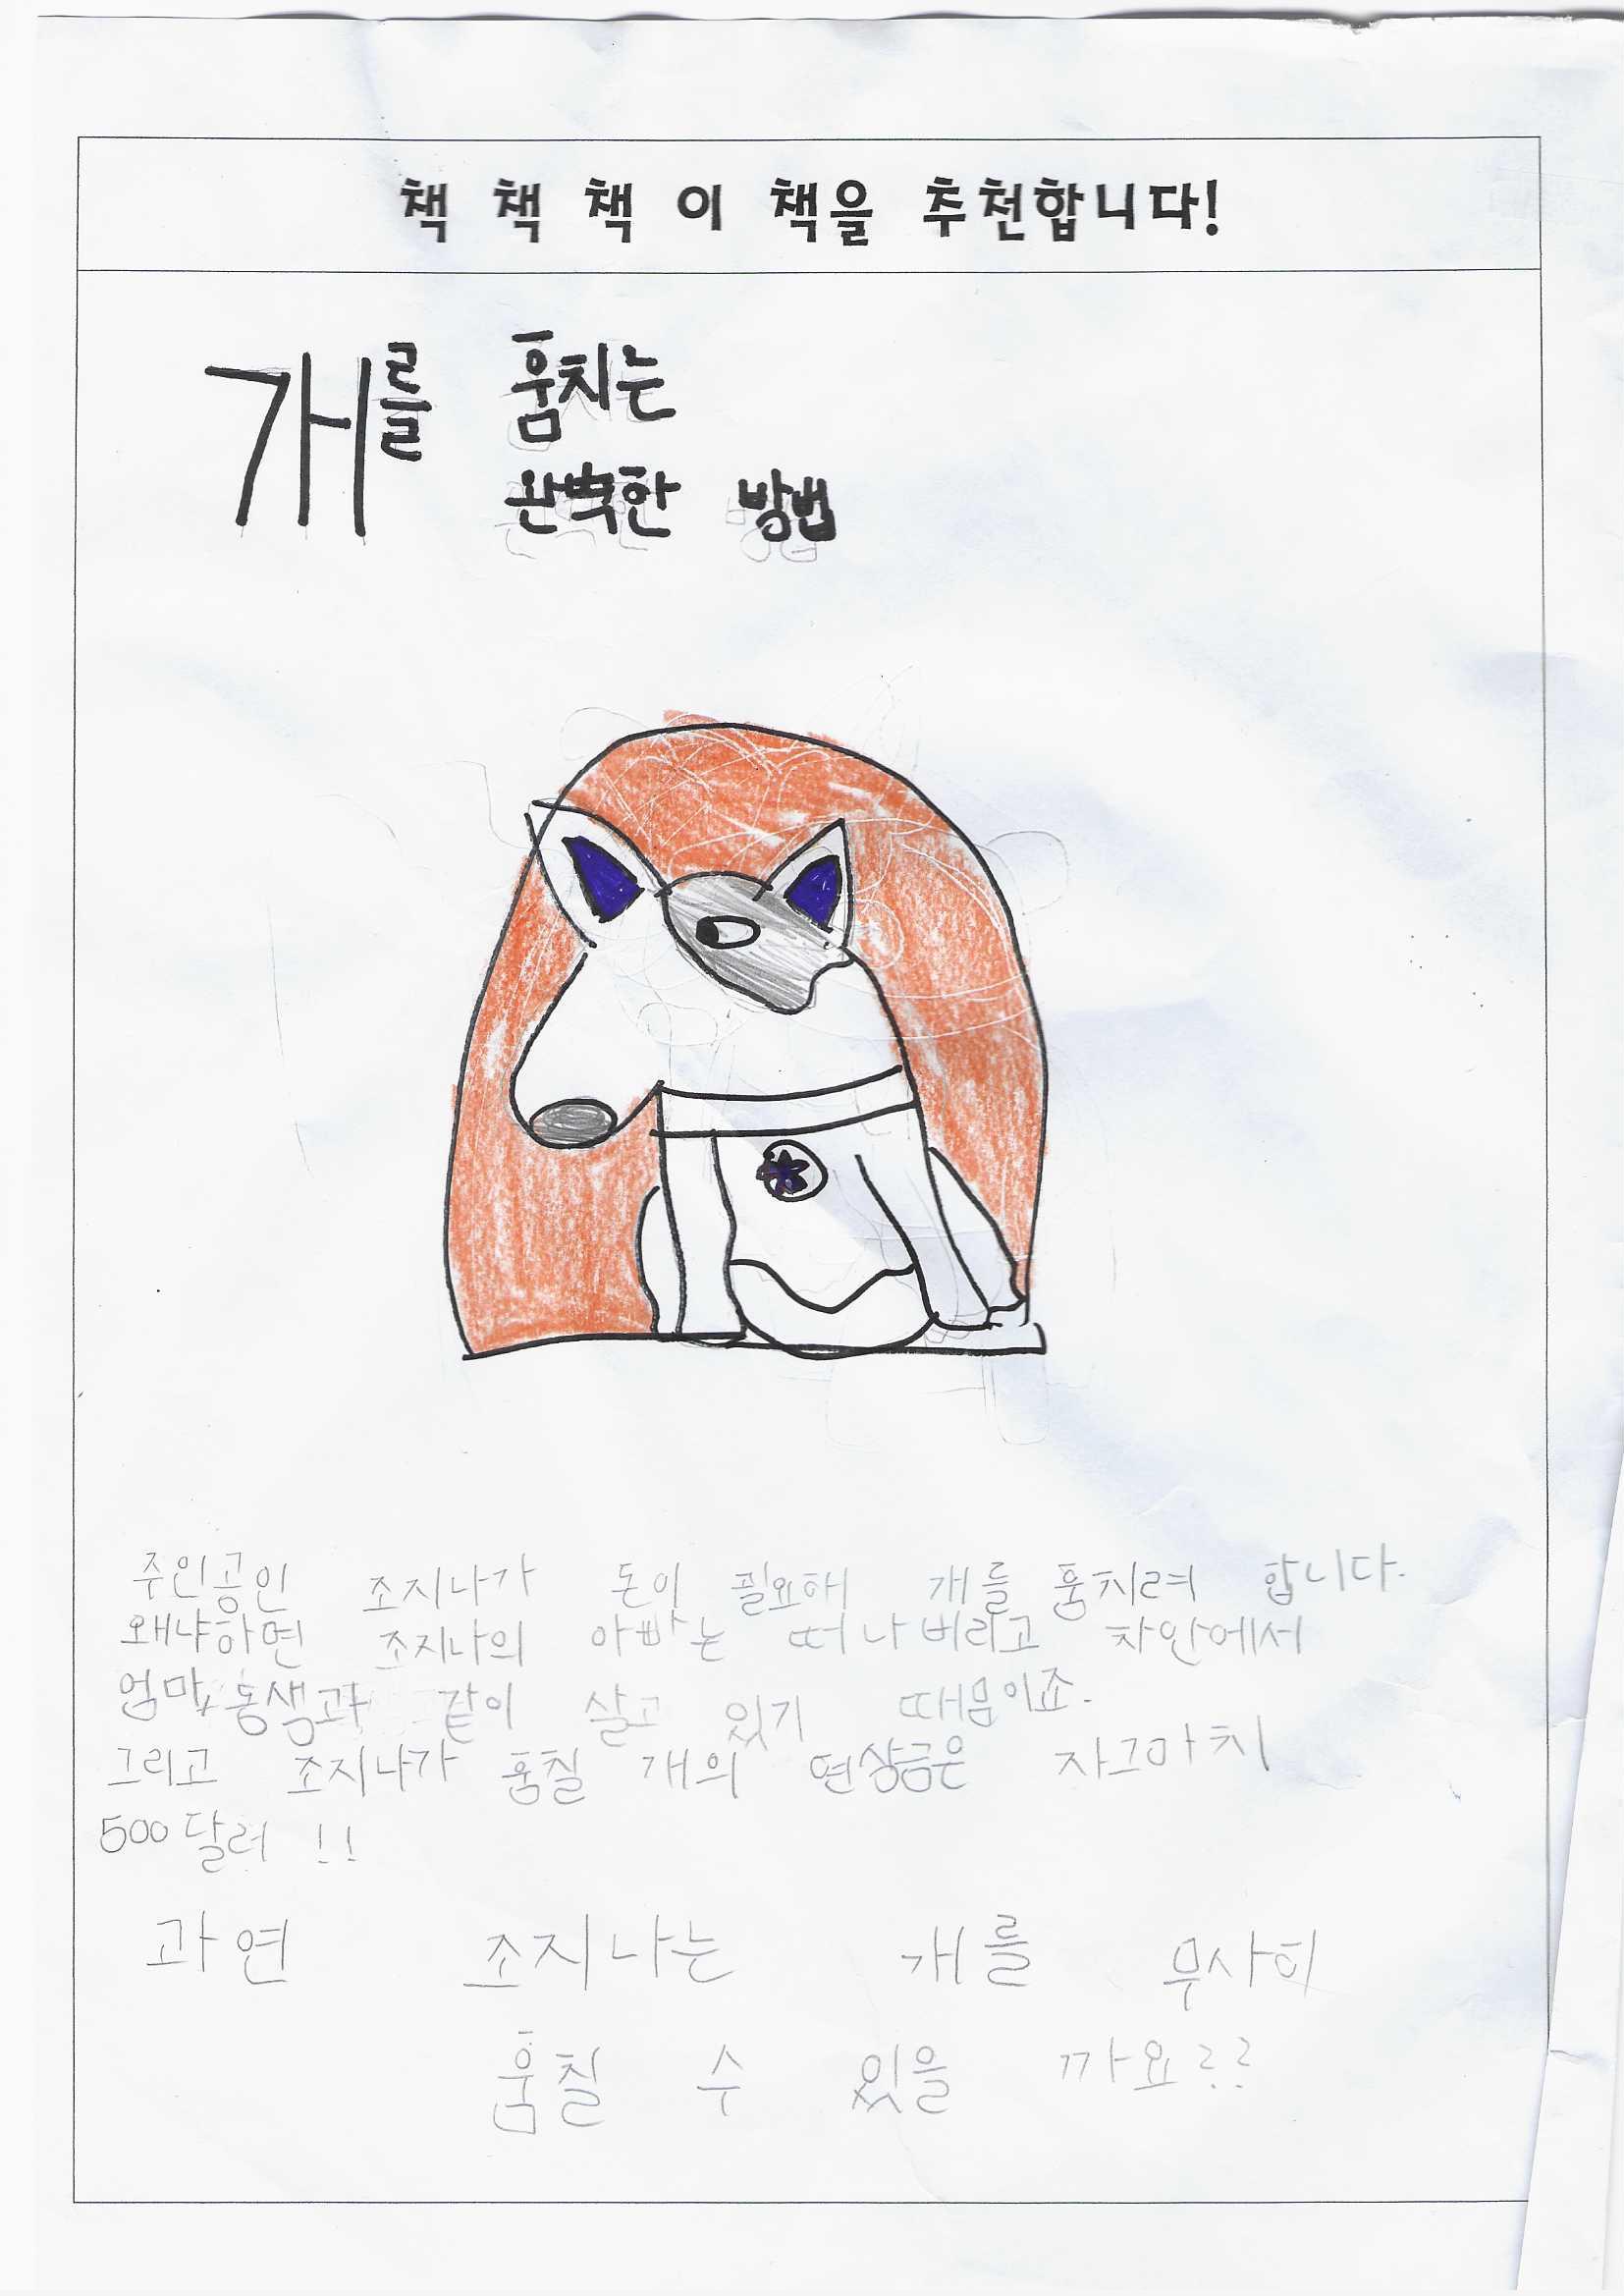 책 책 책 이 책을 추천합니다!
개를 훔치는
완벽한 방법
주인공인 조지나가 돈이 필요해 개를 훔치려 합니다.
왜냐하면 조지나의 아빠는 떠나버리고 차안에서
엄마, 동생과 같이 살고 있기 때문이죠.
그리고 조지나가 훔칠 개의 현상금은 자그마치
500달러 !!
과연 조지나는 개를 무사히
훔칠 수 있을 까요??